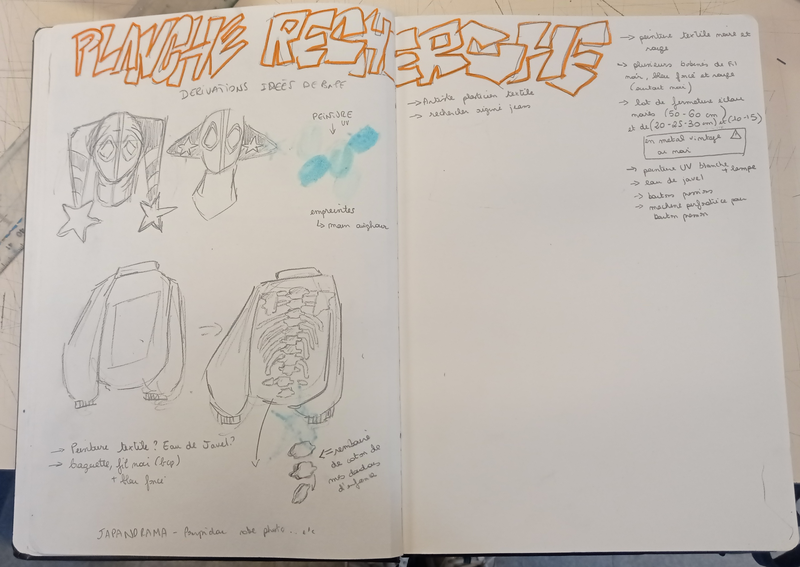 PLANCHE RESHERCHE
DERIVATIONS IDEÉS DE BASE
PEINTURE
UV
empreintes
↳ main
→ Peinture textile? Eau de Javel?
→ baguette, fil noir (bcp)
+ bleu foncé
<= rembourré
de coton de
mes doudous
d'enfance
JAPANORAMA - Pompidou voir photo...
→ Artiste plasticien textile
→ rechercher signé jeans
→ peinture textile noire et
rouge
→ plusieurs bobines de fil
noir, bleu foncé et rouge
→ lot de fermeture éclair
(50-60 cm)
et de (20-25-30 cm) et (10-15)
en métal vintage
ou noir
→ peinture UV blanche + lampe
→ eau de javel
→ bouton pression
→ machine perforatrice pour
bouton pression